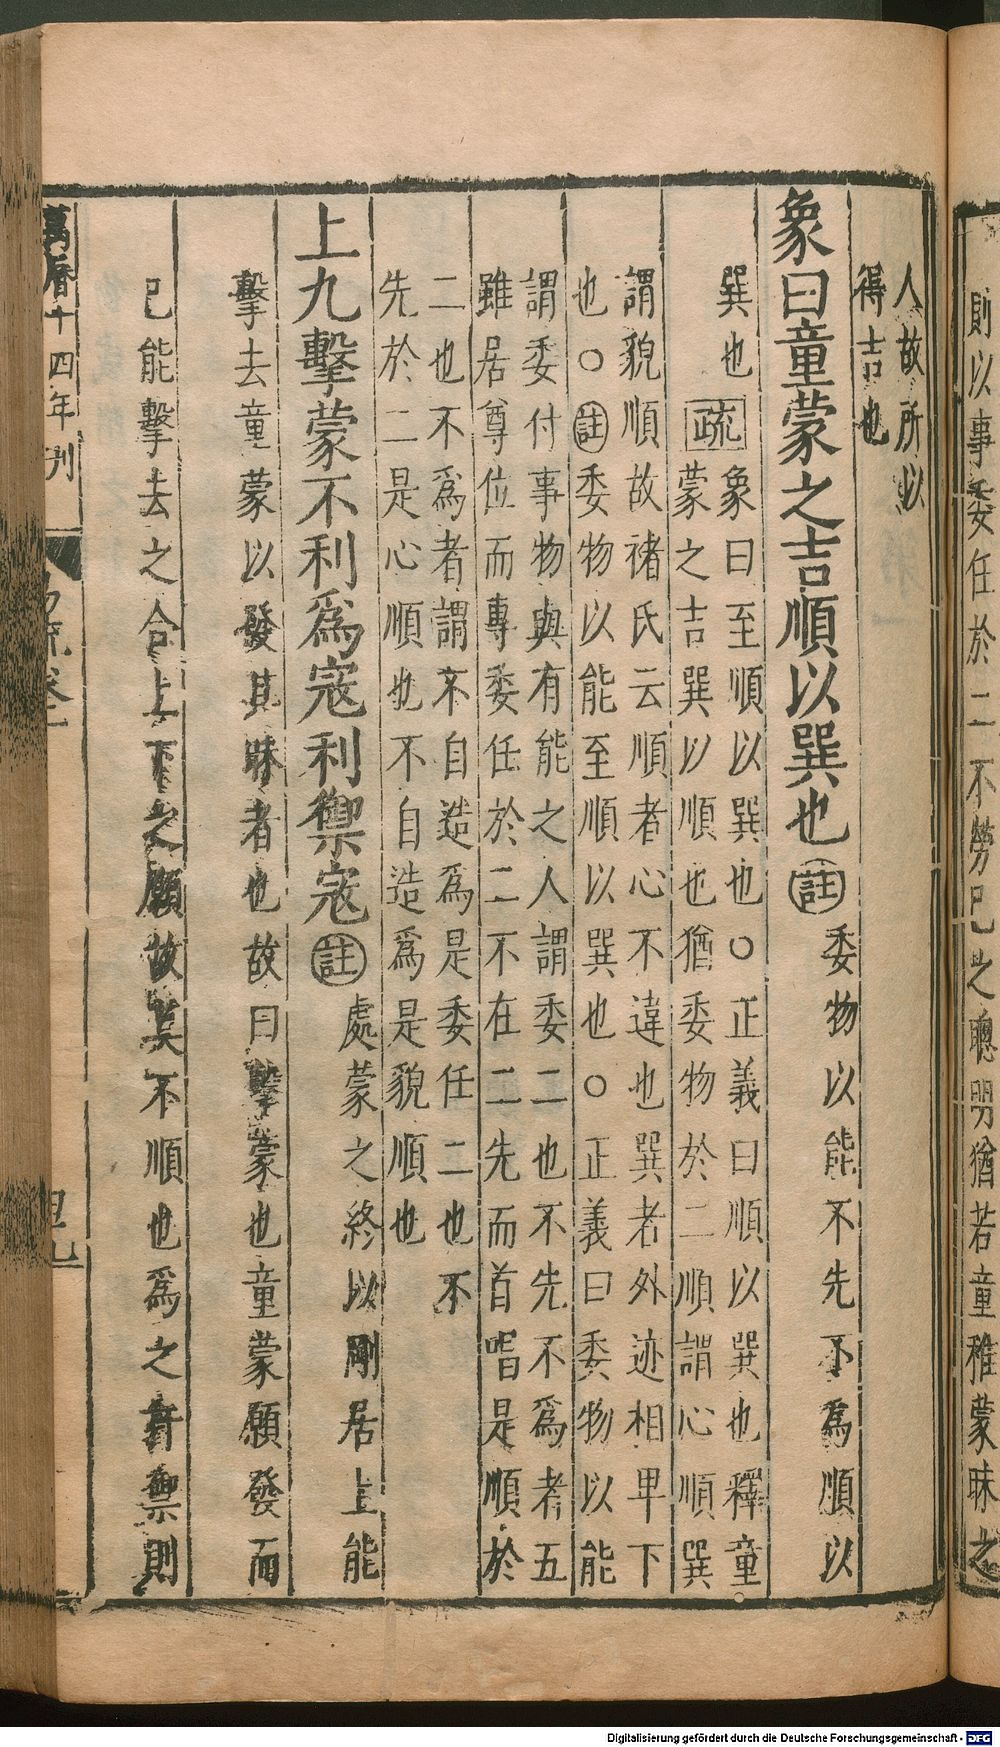 則以事委任於二不勞已之聰明猶若童稚蒙昧之
人故所以
得吉也
象曰童蒙之吉順以巽也註委物以能不先不為順以
巽也疏象曰至順以巽也○正義曰順以巽也釋童
蒙之吉巽以順也猶委物於二順謂心順巽
謂貌順故禇氏云順者心不違也巽者外迹相卑下
也○註委物以能至順以巽也○正義曰委物以能
謂委付事物與有能之人謂委二也不先不為者五
雖居尊位而專委任於二不在二先而首唱是順於
二也不為者謂不自造為是委任二也不
先於二是心順也不自造為是貌順也
上九擊蒙不利為寇利禦寇註處蒙之終以剛居上能
擊去童蒙以發其昧者也故曰擊蒙也童蒙願發而
已能擊去之合上下之願故莫不順也為之扞禦則
萬曆十四年刊
易疏卷一
四九
Digitalisierung gefördert durch die Deutsche Forschungsgemeinschaft - DFG